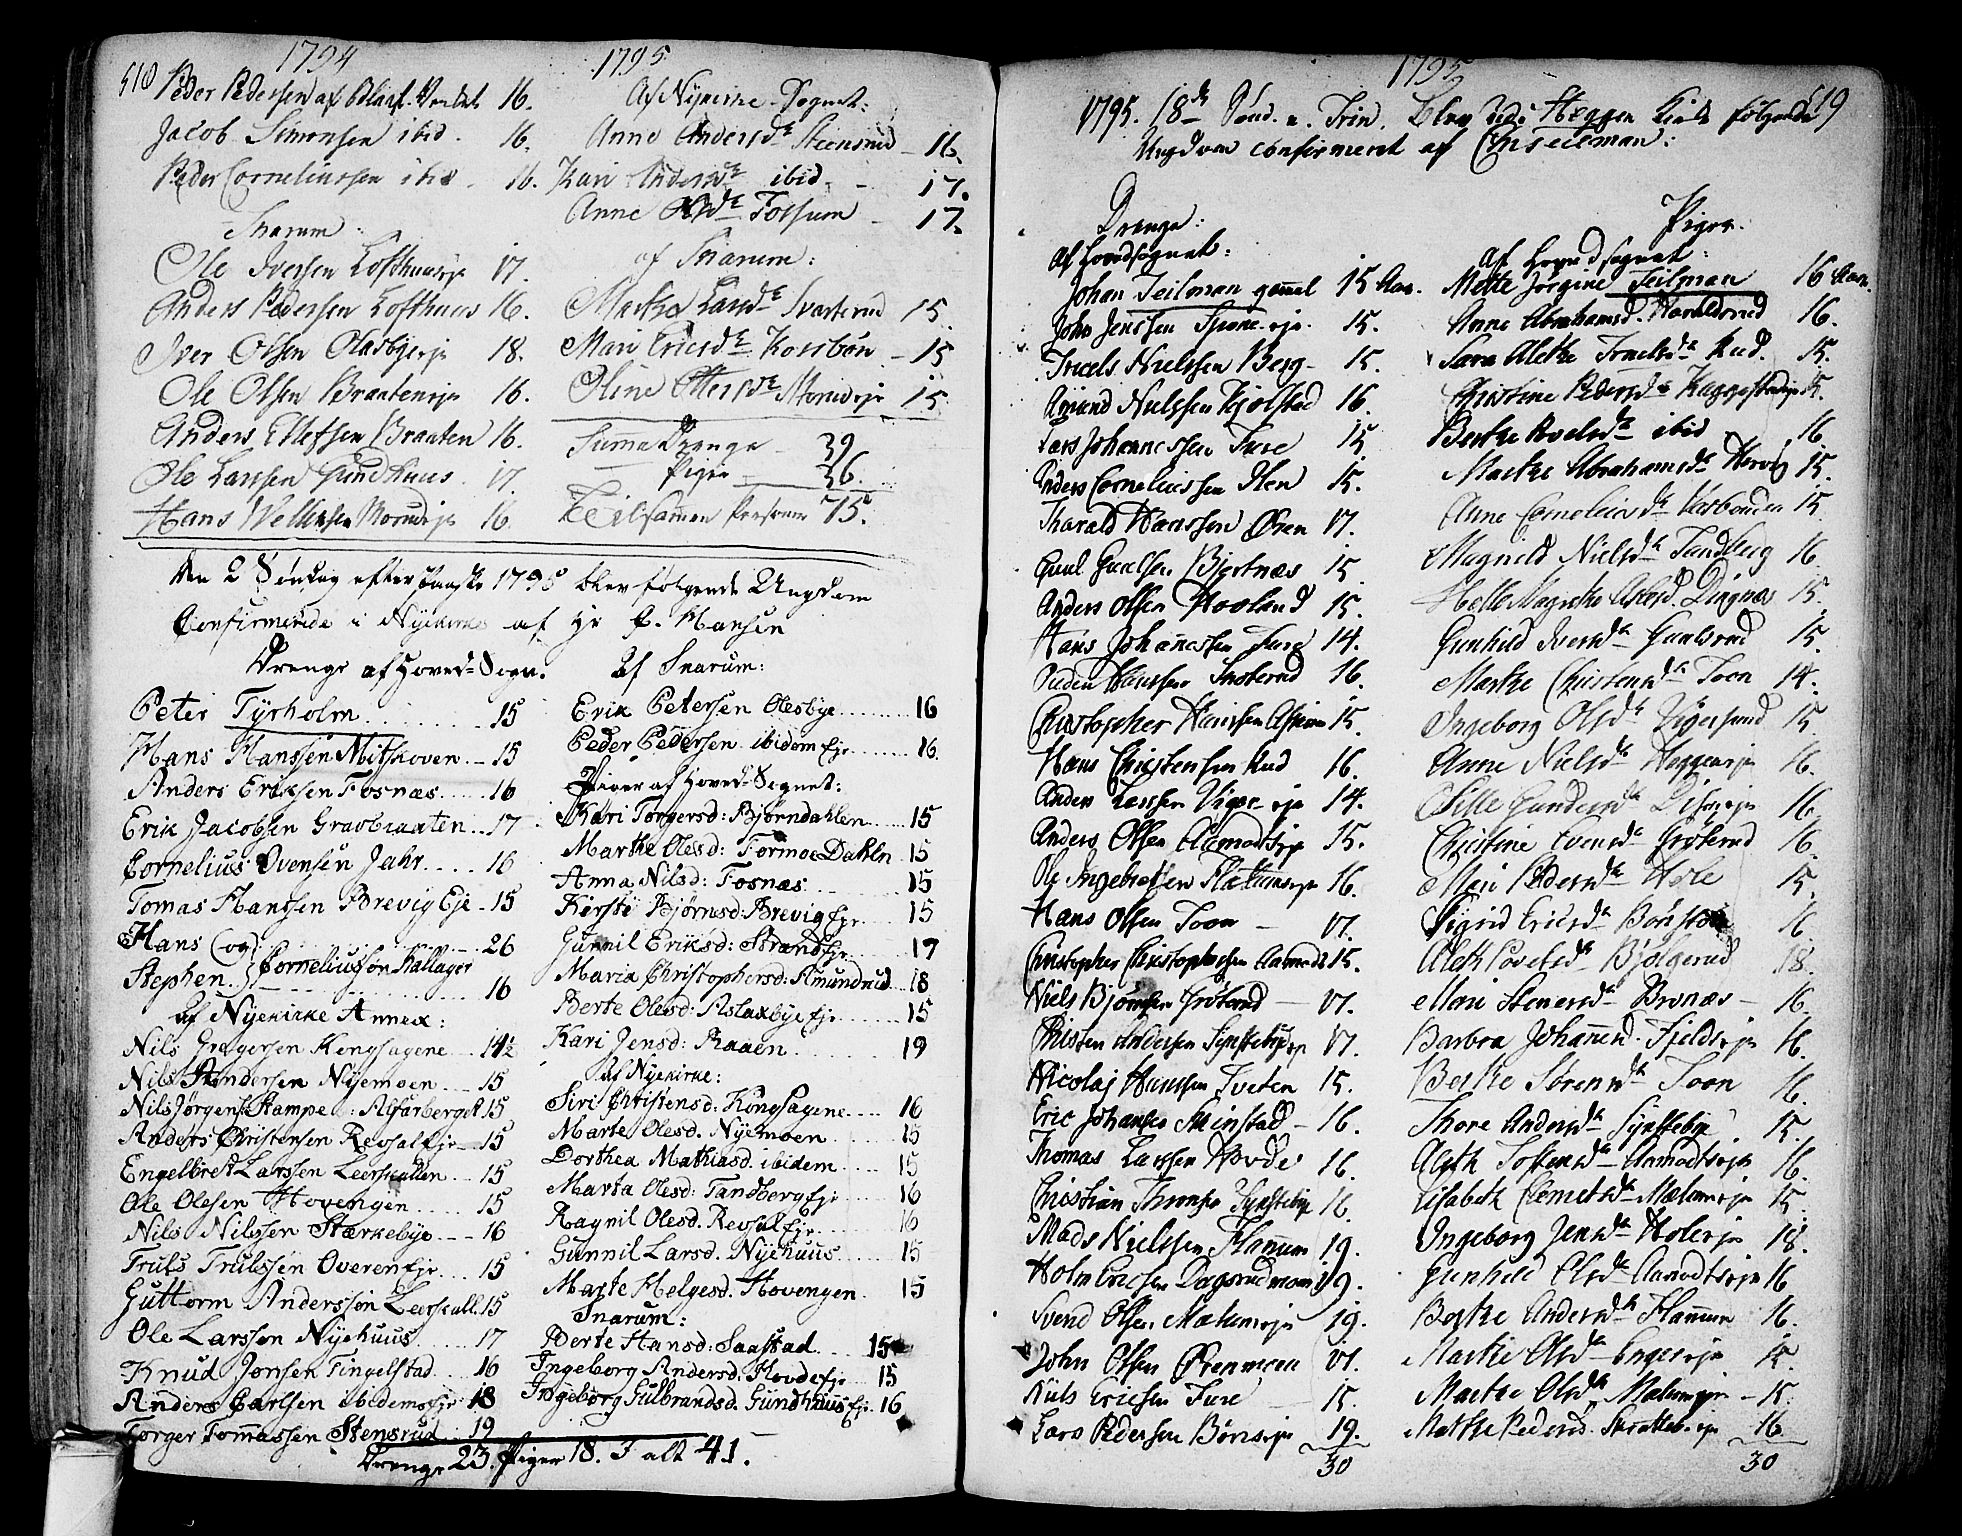 510
1794
Peder Pedersen af
16.
Jacob Simonsen ibid. 16.
Peder Corneliussen ibid. 16.
Snarum:
Ole Iversen Loffthuuseje 17.
Anders Pedersen Loffthuus 16.
Iver Olsen Olasbyeeje 18.
Ole Olsen Braateneje 16.
Anders Ellefsen Braaten 16.
Ole Larssen Gundhuus. 17.
Hans Morudeje 16.
1795
Af Nykirke Sognet:
Anne Andersdr Steensrud 16.
Kari Andersdr ibid 17.
Anne Fossum 17.
af Snarum:
Marthe Larsdr Svarterud 15.
Mari Ericsdr Korsbøn 15
Oline Ottersdr Morudeje 15
Summa Drenge 39.
Piger 36.
Tilsammen Personer 75.
Den 2 Søndag efter Paaske 1795 blev følgende Ungdom
Confirmerede i Nyekirke af Hr P. Hansen
Drenge af Hoved-Sogn.
Peter Tyrholm 15
Hans Hanssen Mitskoven 15
Anders Eriksen Fosnæs 16
Erik Jacobsen Gravbraaten 17
Cornelius Svensen Jahr 16
Tomas Hanssen Brevig Eje 15
Hans (og) 26
Stephen Corneliussøn Kallager 16
af Nyekirke Annex:
Nils Gregersen Kongsagene 14½
Nils Andersen Nyemoen 15
Nils Jørgens. Stampe: Alfarberget 15
Anders Christensen Revsal Eje 15
Engelbret Larssen Leerskallen 15
Ole Olesen Hovengen 15
Nils Nilssen Stærkebye 16
Truls Trulssen Overen Eje 15
Guttorm Anderssøn Leerskall. 15
Ole Larssen Nyehuus 17
Knud Jonsen Tingelstad 16
Anders Carlsen ibidems Eje 18
Torger Tomassen Stensrud 19
Af Snarum:
Erik Petersen Olesbye 16
Peder Pedersen ibidem Eje 16
Piger af Hoved-Sognet:
Kari Torgersd: Bjørndahlen 15
Marthe Olesd: Formoe Dahln 15
Anna Nilsd: Fosnæs 15
Kersti Bjørnsd: Brevig Eje 15
Gunnil Eriksd: Strand Eje 17
Maria Christophersd: Amundrud 18
Berte Olesd: Aslaxbye Eje 15
Kari Jensd: Raaen 19
af Nyekirke:
Siri Christensd: Kongsagene 16
Marte Olesd. Nyemoen 15
Dorthea Mathiasd. ibidem 15
Marta Olesd: Tandberg Eje 16
Ragnil Olesd. Revsal Eje 16
Gunnil Larsd. Nyehuus 15
Marte Helgesd. Hovengen 15
Snarum:
Berte Hansd: Saastad 15
Ingeborg Andersd: Hovde Eje 15
Ingeborg Gulbrandsd. Gundhuus Eje 16
Drenge 23. Piger 18. I alt 41.
1795
519
1795. 18de Sønd. e. Trin. Blev udi Heggen Kirke følgende
Ungdom confirmeret af
Drenge:
Af Hovedsognet:
Johan Teilman gammel 15 Aar.
John Jenssen eje. 15.
Nielssen Berg 15.
Amund Nielssen Kjølstad 16.
Lars Johannessen Fure 15
Anders Corneliussen Ilen 15.
Harald Hanssen Øren 17.
Gaul Gaulsen Bjertnæs 15.
Anders Olsen Hovland 15.
Hans Johannessen Fure 14.
Peder Hanssen 16.
Christopher Hanssen 15.
Hans Christensen Rud 16.
Anders Larssen eje 14.
Anders Olsen Aamodtseje 15.
Ole Ingebretsen 16.
Hans Olsen Toon 17.
Christopher Christophersen Aamodt 15.
Niels Bjørnsen Grøterud 17.
Christen Andersen 17.
Nicolaj Hanssen Tveten 15.
Eric Johanss 16.
Thomas Larssen Hovde 16.
Christian 16.
Mads Nielssen Flannum 19.
Holm Ericsen 19.
Svend Olsen Mælumseje 19.
John Olsen Ørenmoen 17.
Niels Ericsen Fure 15.
Lars Pedersen Bønseje 19.
30
Piger.
Af Hovedsognet:
Mette Jørgine Teilman 16 Aar.
Anne Abrahamsd. Haraldsrud 16.
Sara Alethe Rud. 15.
Christine Pedersdr 15.
Berthe ibid 16.
Marthe Abrahamsdr 15.
Anne Corneliusdr Vasbonden 15
Magnild Nielsdr Tandberg 16
Helle Magrethe 15.
Gunhild Iversdr Gaulsrud 15.
Marthe Christensdr Toon 14.
Ingeborg Olsdr 15
Anne Nielsdr Heggeneje 16.
Sille Gundersdr 16
Christine Evensdr Grøterud 16.
Mari Pedersdr Hole 15.
Sigrid Ericsdr 16
Aleth Bjølgerud 18.
Mari Stenersdr Brenæs 16.
Barbra Johannsd. Fjeldseje 16.
Berthe Sørensdr Toon 16.
Thore Andersdr 15.
Aleth Tostensdr Aamodtseje 16.
Elisabeth Clemetsdr Mælumeje 15.
Ingeborg Jensdr Holeeje 18.
Gunhild Olsdr Aamodtseje 16
Berthe Andersdr Flannum 16.
Marthe Olsdr Engereje 15.
Marthe Olsdr Mælumeje 15.
Marthe Pedersd. 16
30